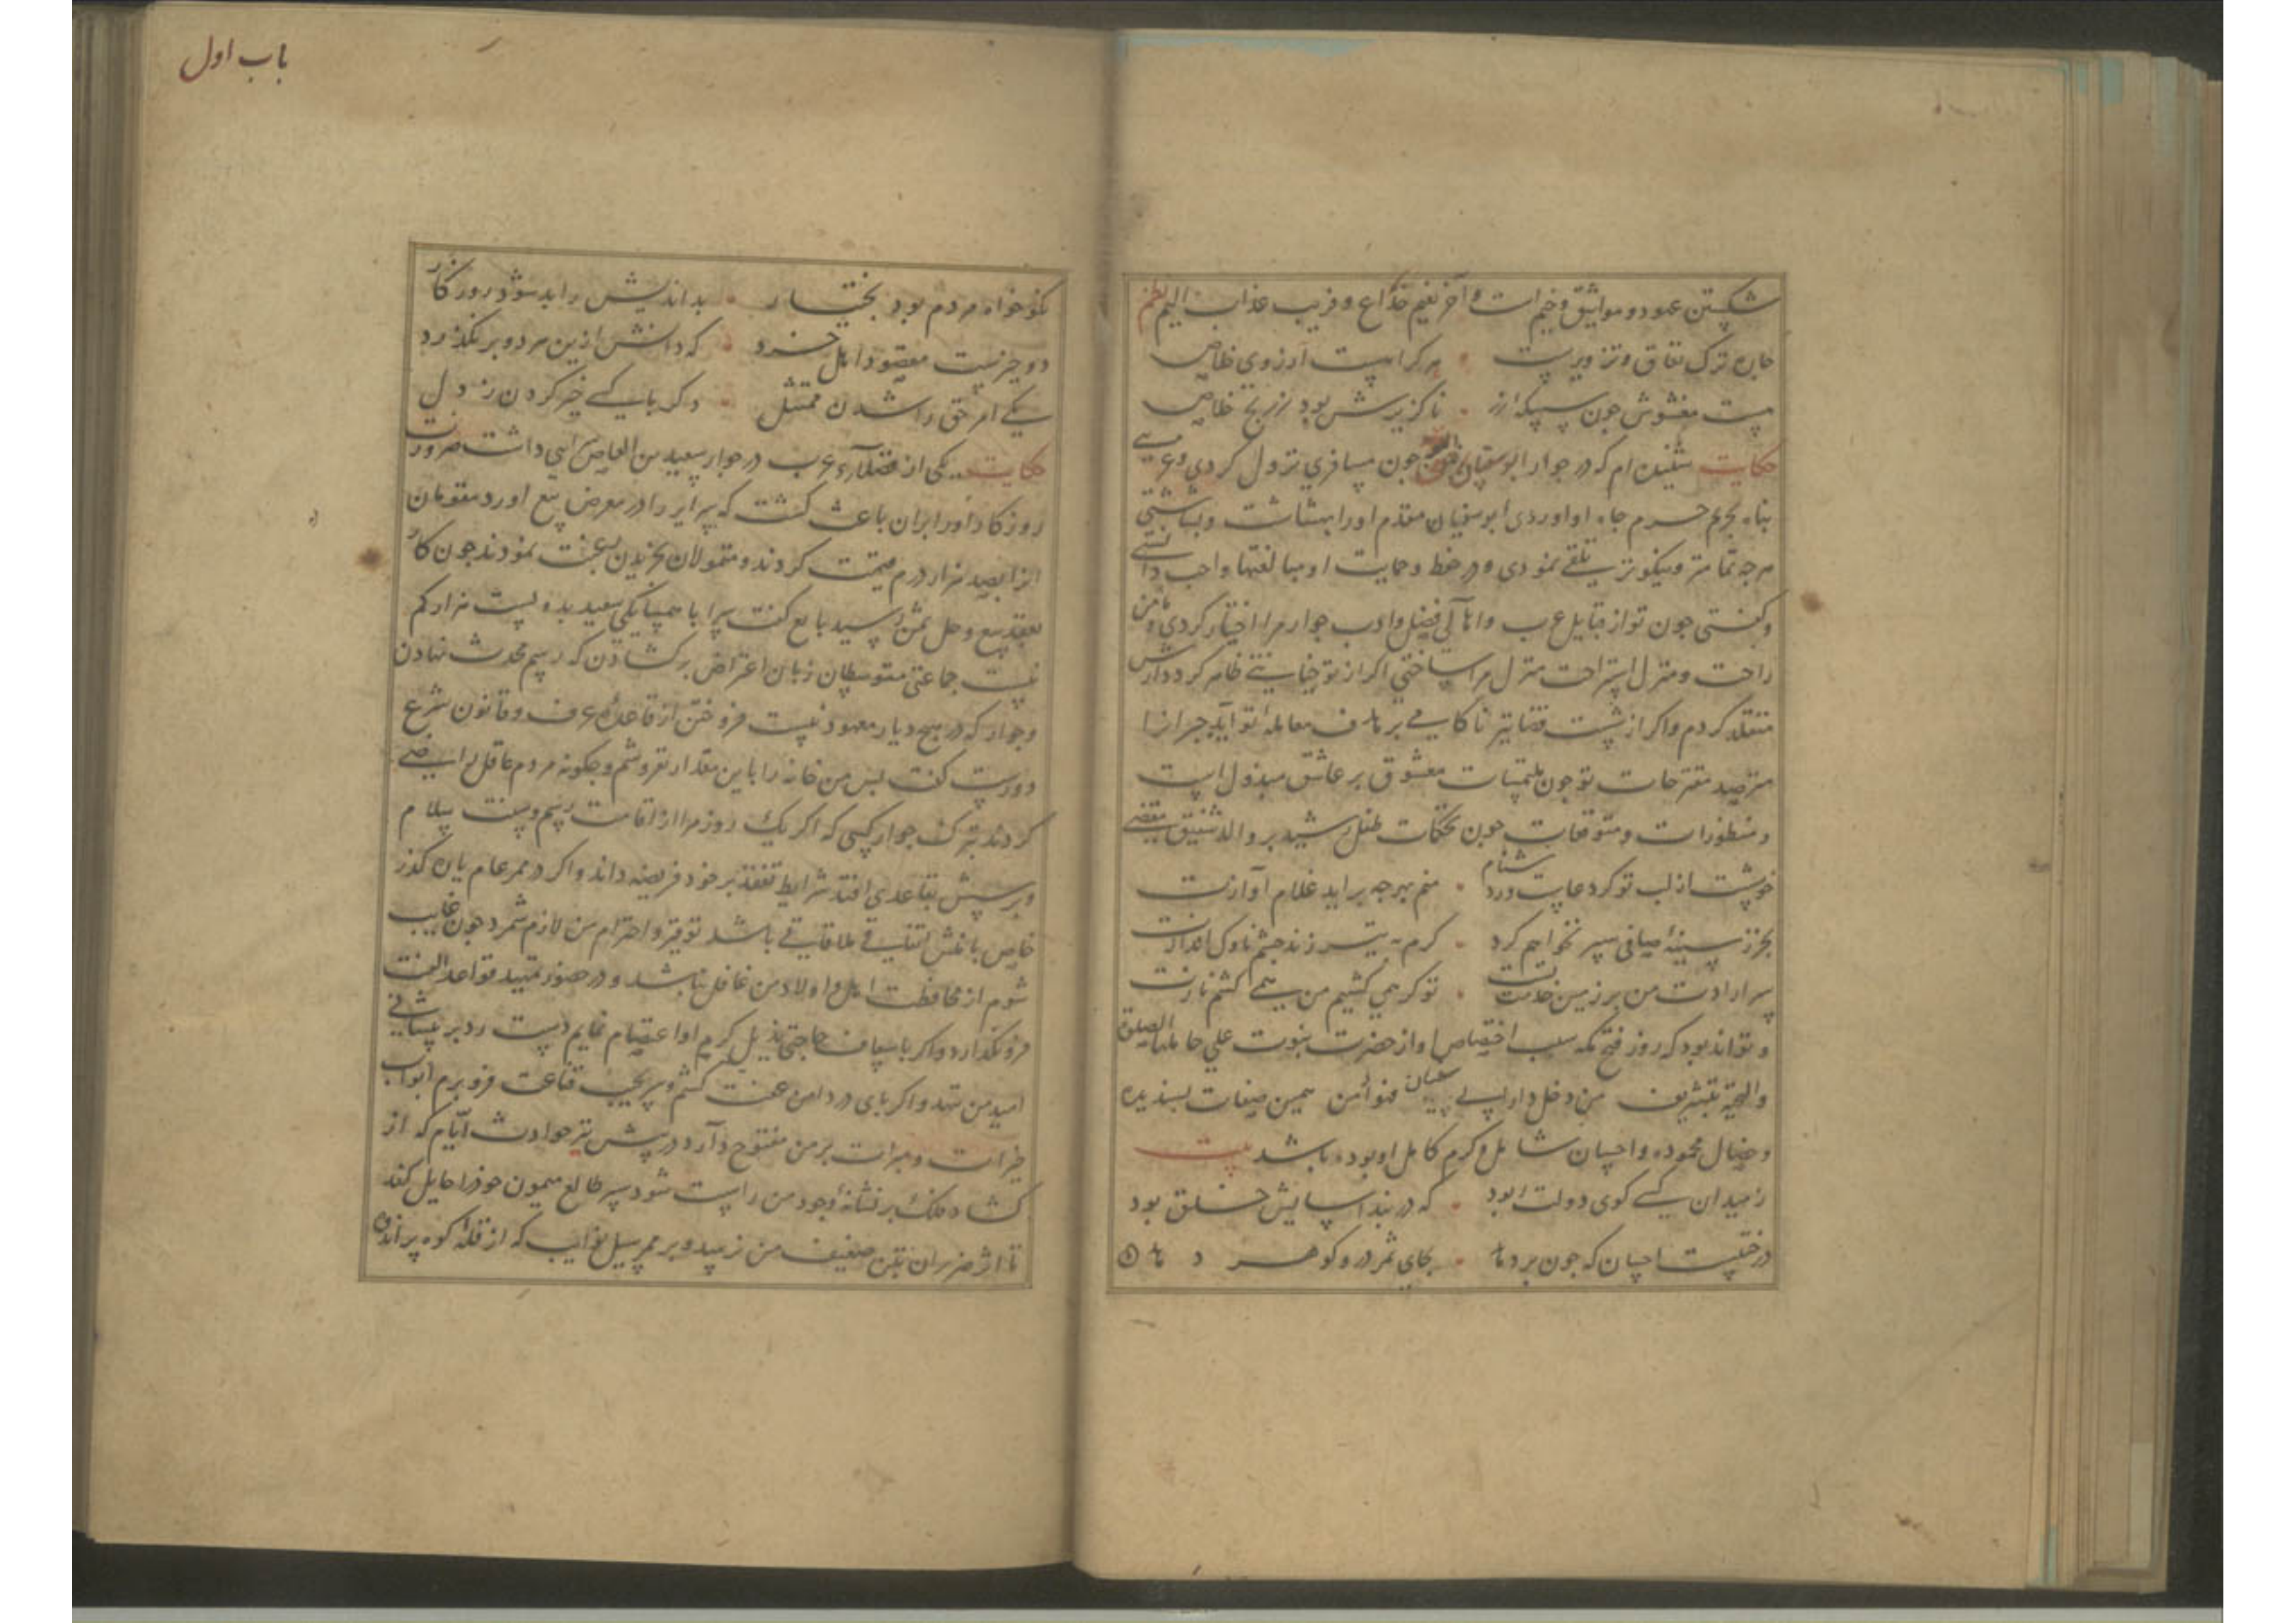 شکستن عهود و مواثیق وخیم است و آخر نعیم خداع و فریب عذاب الیم نظم
ترک نفاق و تزویرست هر کرا هست ارزوی خلاص
هست مغشوش جون سپیکه زر ناکزیرش بود ز رنج خلاص
حکایت شنیده ام که در جوار ابوسفیان جون مسافری نزول کردی و غریبی
پناه بحریم حرم جاه او اوردی ابوسفیان مقدم او را ببشاشت و
هرجه تمامتر و نیکوتر تلقی نمودی و در حفظ و حمایت او مبالغتها واجب دانستی
و کفتی جون تو از قبایل عرب و اهالی فضل و ادب جوار مرا اختیار کردی و مامن
راحت و منزل استراحت منزل مرا ساختی اکر از تو جنایتی ظاهر کردد ارش
متقلد کردم و اکر از شست قضا تیر ناکامی بر هدف معامله تو آید جبر انرا
مترصد مقترحات تو جون ملتمسات معشوق بر عاشق مبذول است
و منظورات و متوقعات جون تحکمات طفل رشید بر والد شفیق مقضی
خوشست از لب تو کر دعاست ور دشنام منم بهرجه براید غلام آوازت
بجز ز سینه صافی سپر نخواهم کرد کرم به تیر زند جشم ناوک اندازت
سر ارادت من بر زمین خدمت تست تو کر همی کشیم من همی کشم نازت
و تواند بود که روز فتح مکه سبب اختصاص او از حضرت نبوت علی حاملها الصلوة
والتحیة بتشریف من دخل دار ابی سفیان فهو آمن همین صفات پسندیده
و خصال محموده و احسان شامل و کرم کامل او بوده باشد بیت
ز میدان کسی کوی دولت ربود که در بند اسایش خلق بود
درختیست احسان که جون بر دهد بجای ثمر در و کوهر دهد
باب اول
نکو خواه مردم بود بختیار بد اندیش را بد شود روزکار
دو جیزست مقصود اهل خرد که دانش ازین هر دو بر نکذرد
یکی امر حق را شدن ممتثل دکر با کسی خیر کردن ز دل
حکایت یکی از فضلاء عرب در جوار سعید بن العاص سرایی داشت ضرورت
روزکار باعث کشت که سرای را در معرض بیع اورد مقومان
انرا بصد هزار درم قیمت کردند و متمولان بخریدن رغبت نمودند جون کار
بعقد بیع و حل ثمن رسید بایع کفت سرا با همسایکی سعید بده بیست هزار کم
نیست جماعتی متوسطان زبان اعتراض برکشادن که رسم محدث نهادن
و جوار که در هیج دیار معهود نیست فروختن از قاعده عرف و قانون شرع
دورست کفت پس من خانه را باین مقدار نفروشم و جکونه مردم عاقل راضی
کردند بترک جوار کسی که اکر یک روز مرا از اقامت رسم و سنت سلام
و پرسش تقاعدی افتد شرایط تفقد بر خود فریضه داند و اکر در ممر عام یا ن کذر
خاص با منش اتفاق ملاقات باشد توقیر و احترام من لازم شمرد جون غایب
شوم از محافظت اهل و اولاد من غافل نباشد و در حضور تمهید قواعد الفت
فرونکذارد و اکر باسعاف حاجتی بذیل کرم او اعتصام نمایم دست رد بر پیشانی
امید من ننهد و اکر بای در دامن عفت کشم و سر بجیب قناعت فرو برم ابواب
خیرات و مبرات بر من مفتوح دارد در پیش تیر حوادث ایام که از
کشاد فلک بر نشانه وجود من راست شود سپر طالع میمون خود را حایل کند
تا اثر ضرر ان بتن ضعیف من نرسد و بر ممر سیل نوایب که از قله کوه بر اندوه